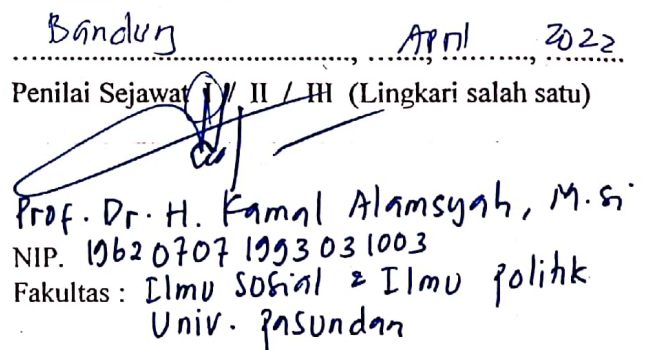 Bandung, April, 2022
Penilai Sejawat I / II / III (Lingkari salah satu)
Prof. Dr. H. Kamal Alamsyah, M.Si
NIP. 19620707 199303 1003
Fakultas : Ilmu Sosial & Ilmu Politik
Univ. Pasundan